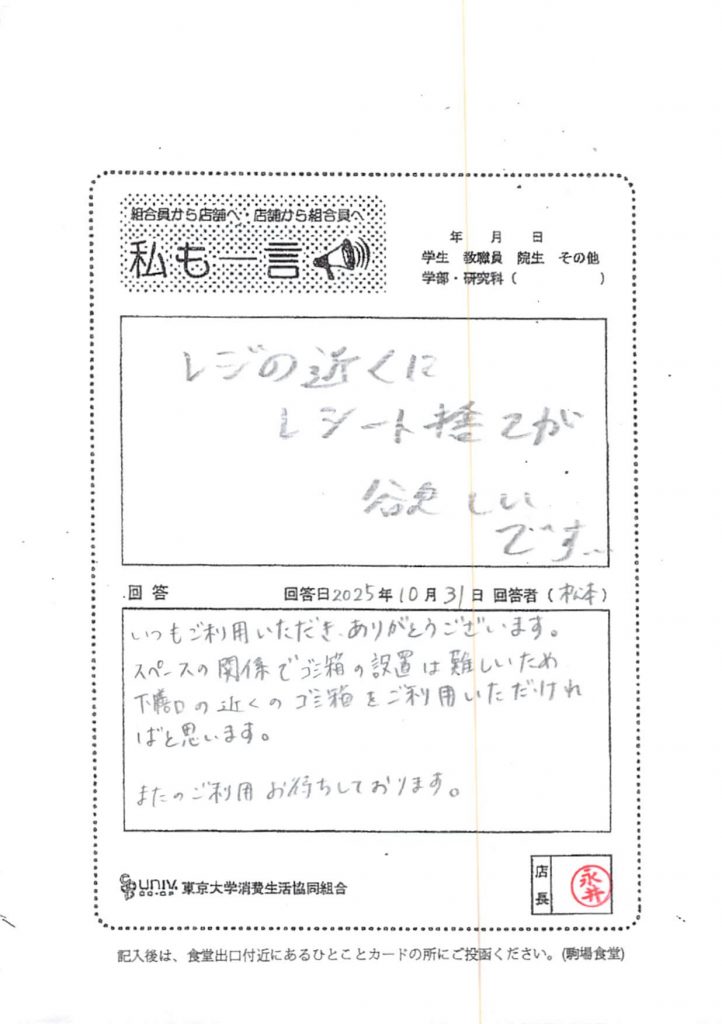 組合員から店舗へ・店舗から組合員へ
私も一言
年 月 日
学生 教職員 院生 その他
学部・研究科 ( )
レジの近くに
レシート捨てが
欲しい
です。
回答 回答日2025年10月31日 回答者 (松本)
いつもご利用いただき、ありがとうございます。
スペースの関係でゴミ箱の設置は難しいため
下膳口の近くのゴミ箱をご利用いただけれ
ばと思います。
またのご利用お待ちしております。
UNIV. CO-OP 東京大学消費生活協同組合
店長 永井
記入後は、食堂出口付近にあるひとことカードの所にご投函ください。(駒場食堂)